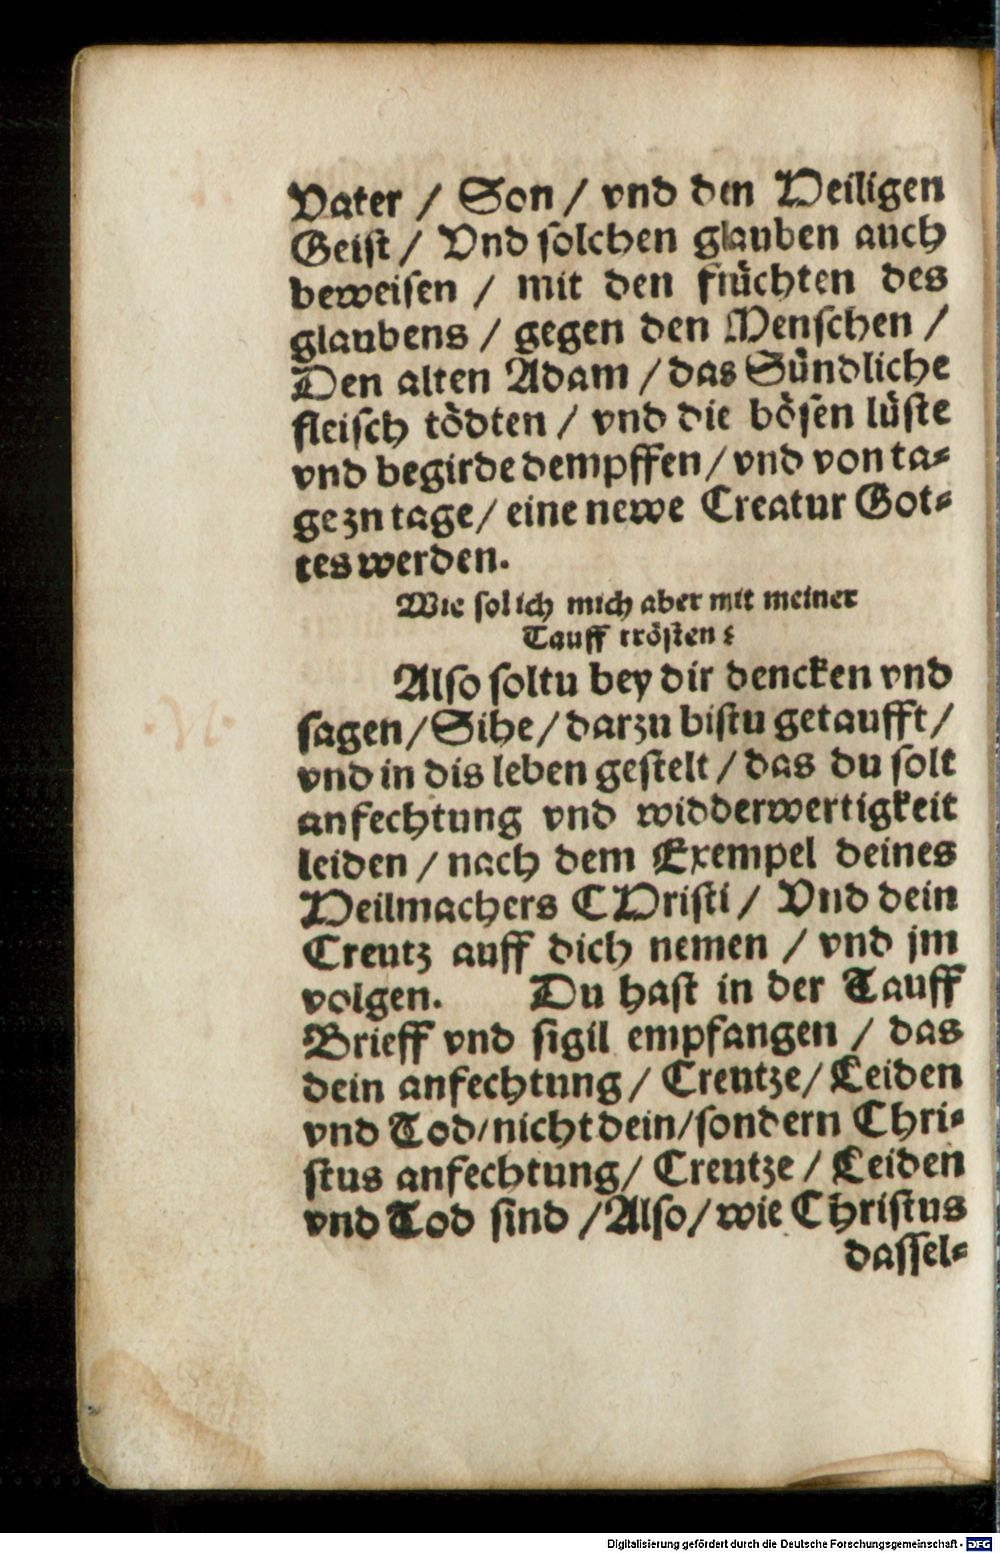 Vater / Son / vnd den Heiligen
Geist / Vnd solchen glauben auch
beweisen / mit den früchten des
glaubens / gegen den Menschen /
Den alten Adam / das Sündliche
fleisch tödten / vnd die bösen lüste
vnd begirde dempffen / vnd von ta-
ge zn tage / eine newe Creatur Got-
tes werden.
Wie sol ich mich aber mit meiner
Tauff trösten?
Also soltu bey dir dencken vnd
sagen / Sihe / darzu bistu getaufft /
vnd in dis leben gestelt / das du solt
anfechtung vnd widderwertigkeit
leiden / nach dem Exempel deines
Heilmachers CHristi / Vnd dein
Creutz auff dich nemen / vnd jm
volgen. Du hast in der Tauff
Brieff vnd sigil empfangen / das
dein anfechtung / Creutze / Leiden
vnd Tod / nicht dein / sondern Chri-
stus anfechtung / Creutze / Leiden
vnd Tod sind / Also / wie Christus
dassel-
Digitalisierung gefördert durch die Deutsche Forschungsgemeinschaft - DFG